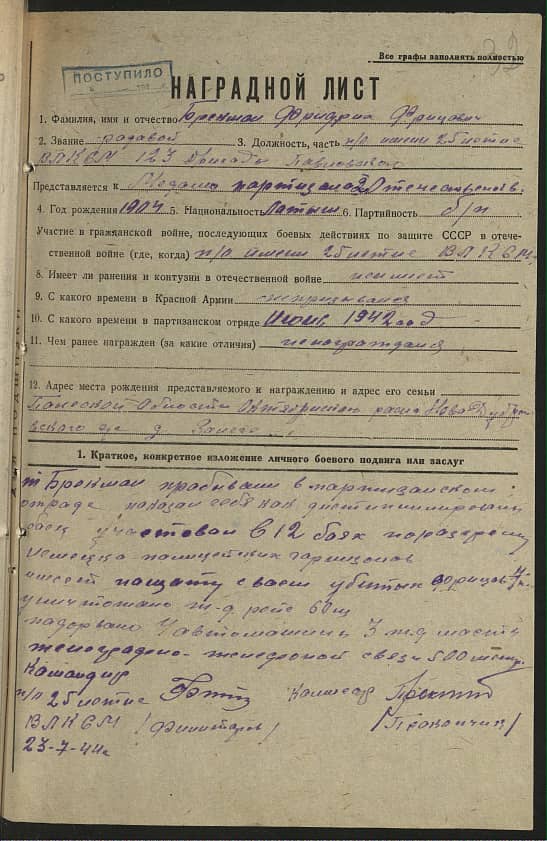 32
Все графы заполнять полностью
ПОСТУПИЛО
НАГРАДНОЙ ЛИСТ
1. Фамилия, имя и отчество Брекман Фридрих Фрицович
2. Звание радавой 3. Должность, часть п/о имени 25 летие
ВЛКСМ 123 бригады
Представляется к Медали партизана 2 Отечествен в.
4. Год рождения 1904 5. Национальность Латыш 6. Партийность б/п
Участие в гражданской войне, последующих боевых действиях по защите СССР в отече-
ственной войне (где, когда) п/о имени 25 летие ВЛКСМ
8. Имеет ли ранения и контузии в отечественной войне неимеет
9. С какого времени в Красной Армии непризывался
10. С какого времени в партизанском отряде Июнь 1942 год
11. Чем ранее награжден (за какие отличия) ненаграждался
12. Адрес места рождения представляемого к награждению и адрес его семьи
Полеской области Октябриский Ново Дубро
вского с/с д
1. Краткое, конкретное изложение личного боевого подвига или заслуг
т Брекман прабывании в партизанском
отраде паказал себя как
баец участвовал в 12 баях
немецка палицейских гарнизонов
имеет на щату сваем убитых фрицов 4
уничтожано ж-д рейс 60 ш
падорвано 1 автомашина 3 ж.д моста
телеграфно-телефоной связи 500
Командир
п/о 25 летие Комисар
ВЛКСМ
23-7-44г